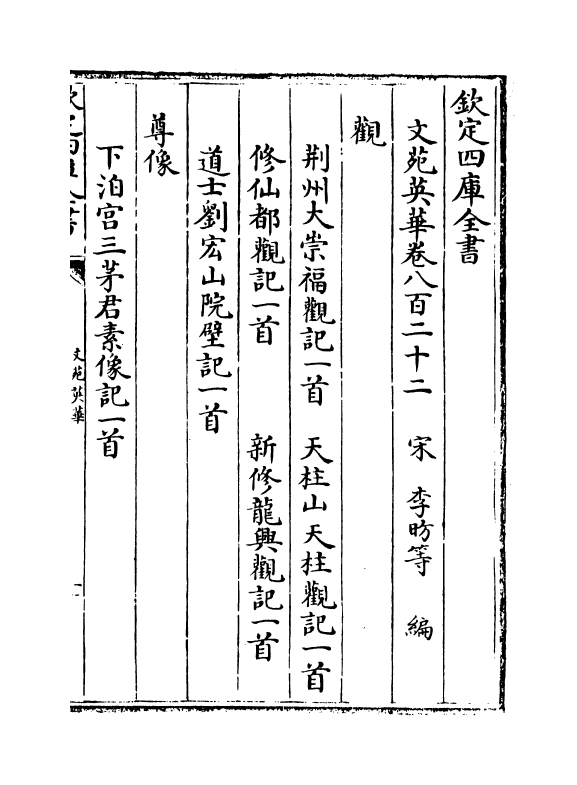 欽定四庫全書
文苑英華卷八百二十二　宋　李昉等　編
觀
荆州大崇福觀記一首　天柱山天柱觀記一首
修仙都觀記一首　新修龍興觀記一首
道士劉宏山院壁記一首
尊像
下泊宫三茅君素像記一首
文苑英華